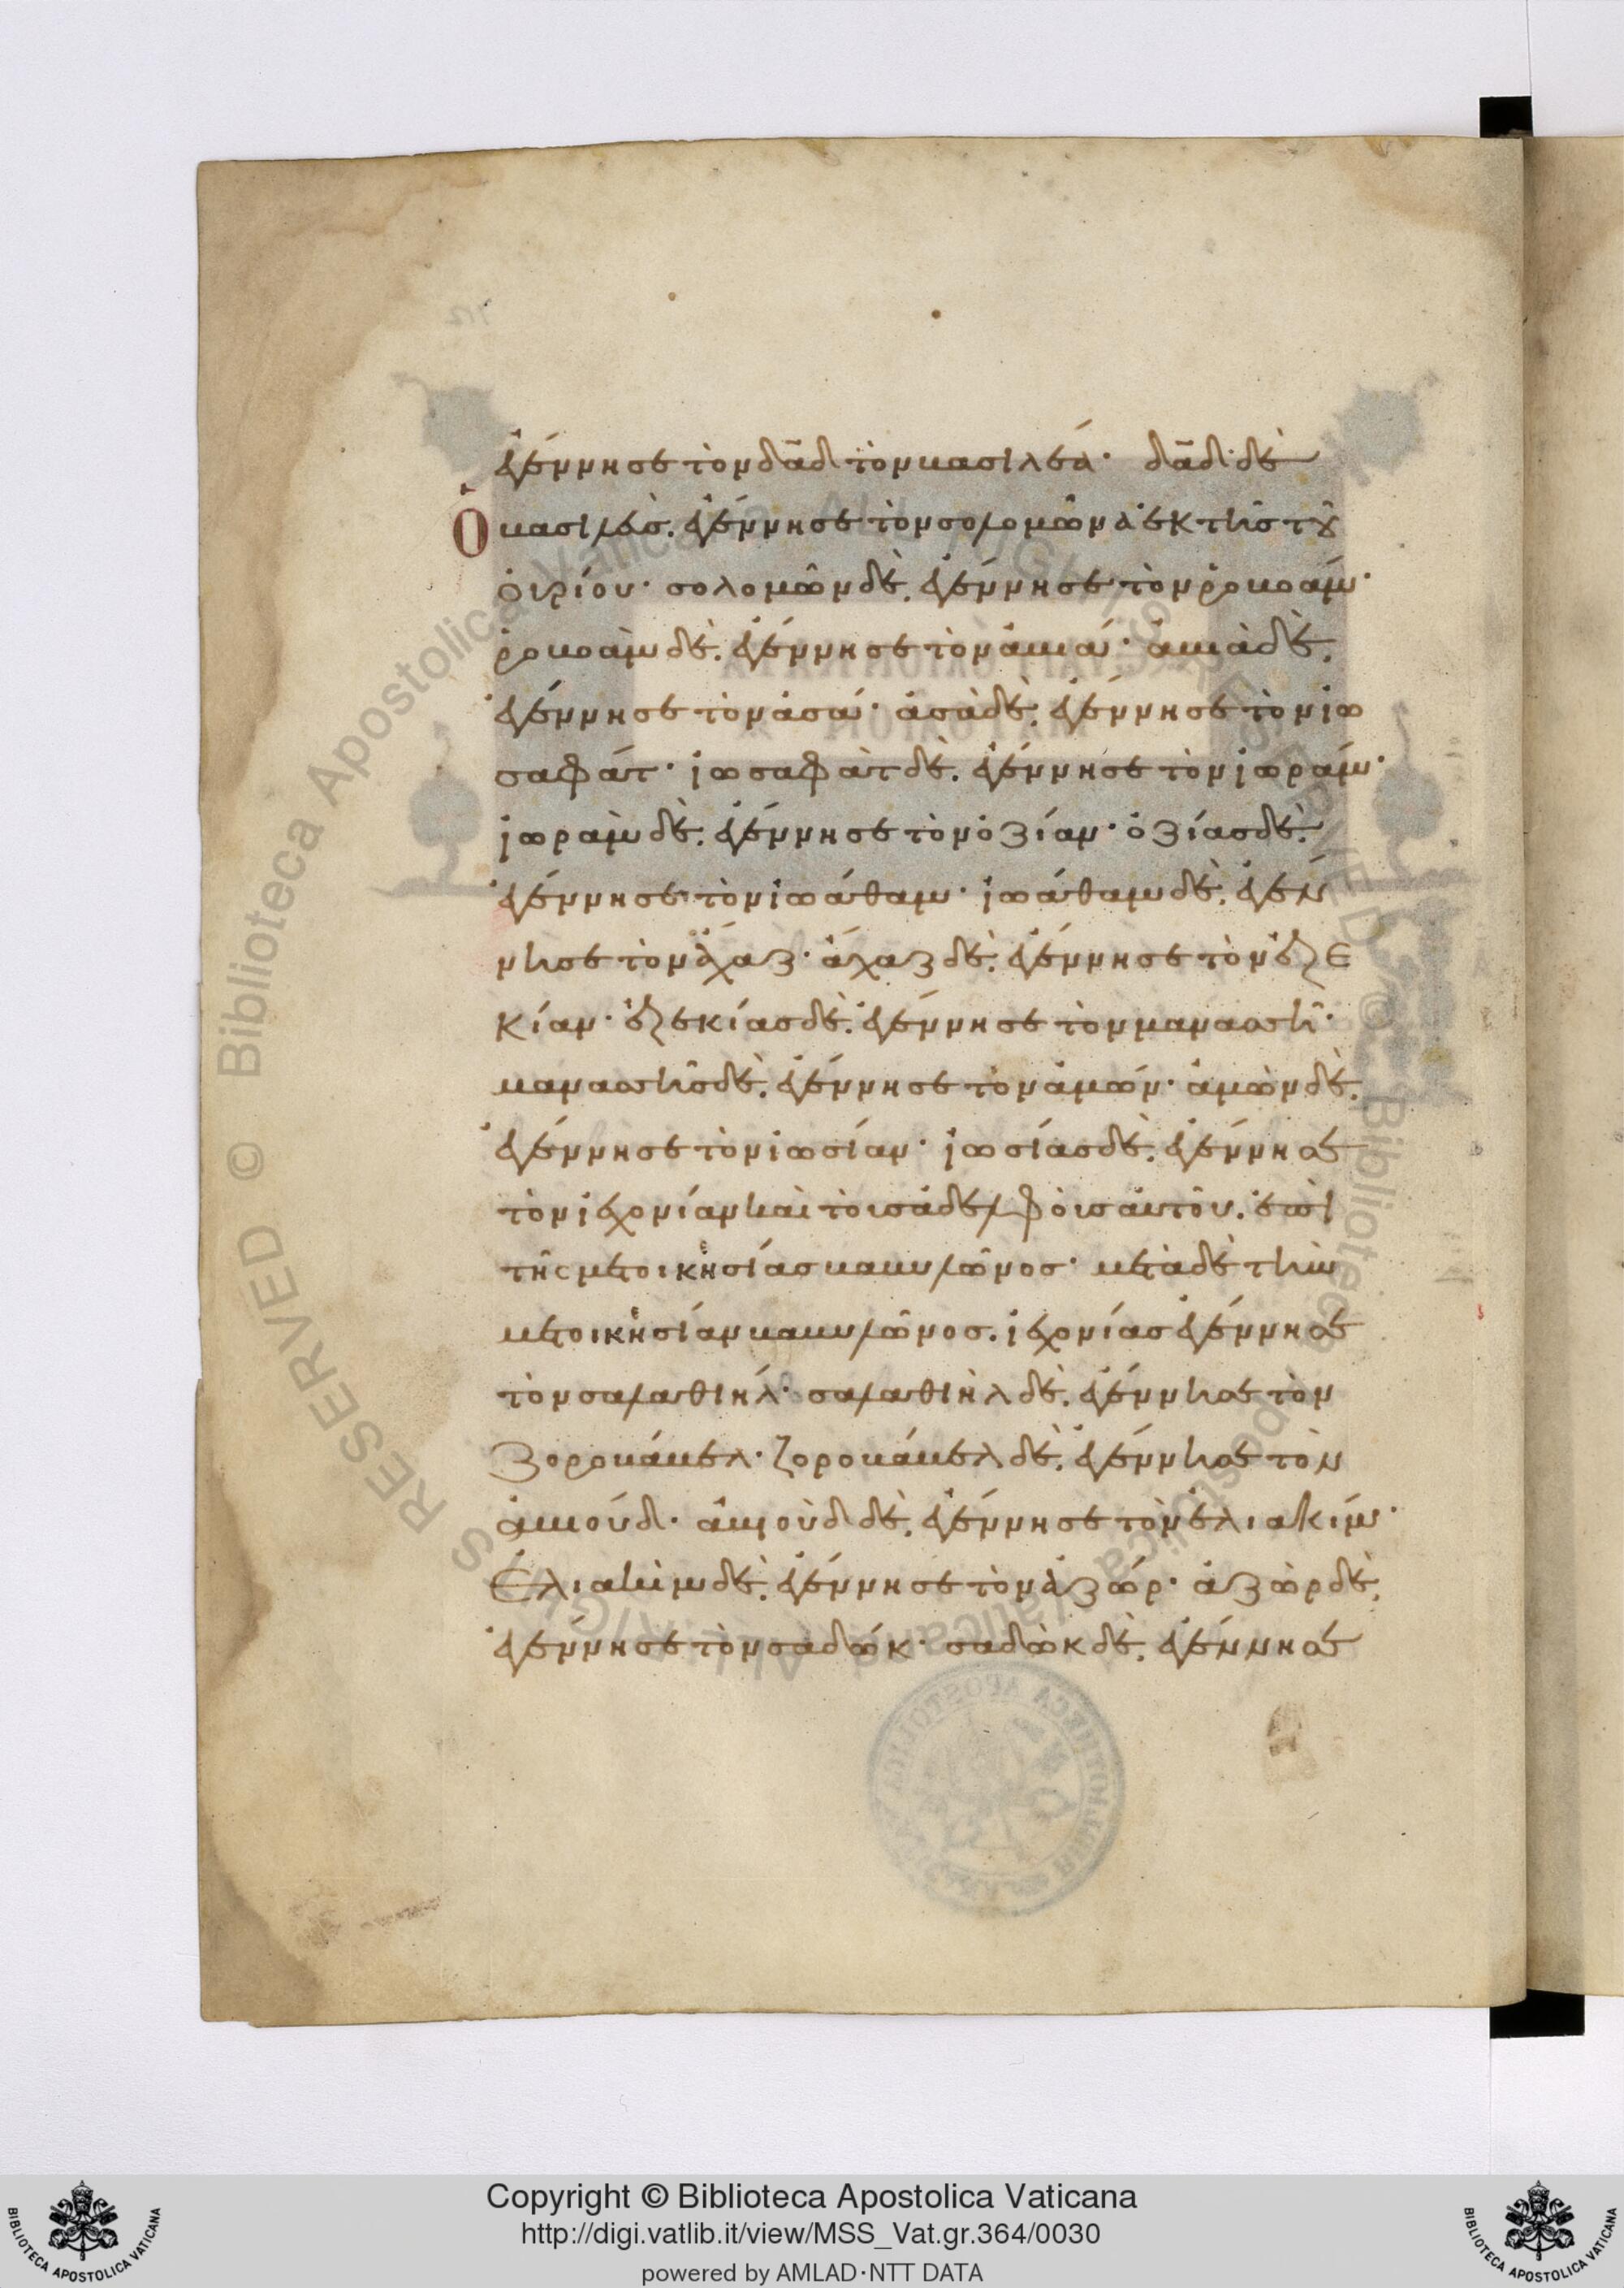 ἐγέννησε τὸν δα̅δ τὸν βασιλέα· δα̅δ δὲ
Ὁ βασιλεὺς. ἐγέννησε τὸν σολομῶνα ἐκ τῆς τοῦ
οὐρίου· σολομῶν δὲ. ἐγέννησε τὸν ῥοβοάμ·
ῥοβοὰμ δὲ. ἐγέννησε τὸν ἀβιά· ἀβιὰ δὲ.
ἐγέννησε τὸν ἀσά· ἀσὰ δὲ. ἐγέννησε τὸν ἰω
σαφάτ· ἰωσαφὰτ δὲ. ἐγέννησε τὸν ἰωράμ·
ἰωρὰμ δὲ. ἐγέννησε τὸν ὀζίαν· ὀζίας δὲ.
ἐγέννησε τὸν ἰωάθαμ· ἰωάθαμ δὲ. ἐγέν
νησε τὸν ἄχαζ· ἄχαζ δὲ. ἐγέννησε τὸν ἐζε
κίαν· ἐζεκίας δὲ. ἐγέννησε τὸν μανασσῆ·
μανασσῆς δὲ. ἐγέννησε τὸν ἀμών· ἀμὼν δὲ.
ἐγέννησε τὸν ἰωσίαν· ἰωσίας δὲ. ἐγέννησε
τὸν ἰεχονίαν καὶ τοὺς ἀδελφοὺς αὐτοῦ. ἐπὶ
τῆς μετοικησίας βαβυλῶνος· μετὰ δὲ τὴν
μετοικησίαν βαβυλῶνος. ἰεχονίας ἐγέννησε
τὸν σαλαθιήλ· σαλαθιὴλ δὲ. ἐγέννησε τὸν
ζοροβάβελ· ζοροβάβελ δὲ. ἐγέννησε τὸν
ἀβιούδ· ἀβιοὺδ δὲ. ἐγέννησε τὸν ἐλιακίμ·
Ἐλιακὶμ δὲ. ἐγέννησε τὸν ἀζώρ· ἀζὼρ δὲ.
ἐγέννησε τὸν σαδώκ· σαδὼκ δὲ. ἐγέννησε
Copyright © Biblioteca Apostolica Vaticana
http://digi.vatlib.it/view/MSS_Vat.gr.364/0030
powered by AMLAD·NTT DATA
BIBLIOTECA APOSTOLICA VATICANA
BIBLIOTECA APOSTOLICA VATICANA